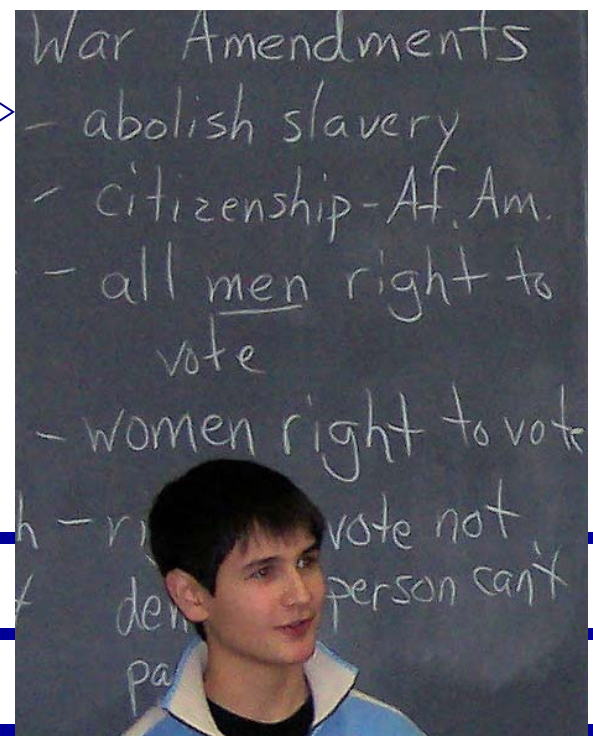 War Amendments
- abolish slavery
- citizenship-Af. Am.
- all men right to
vote
- women right to vote
h - vote not
person can't